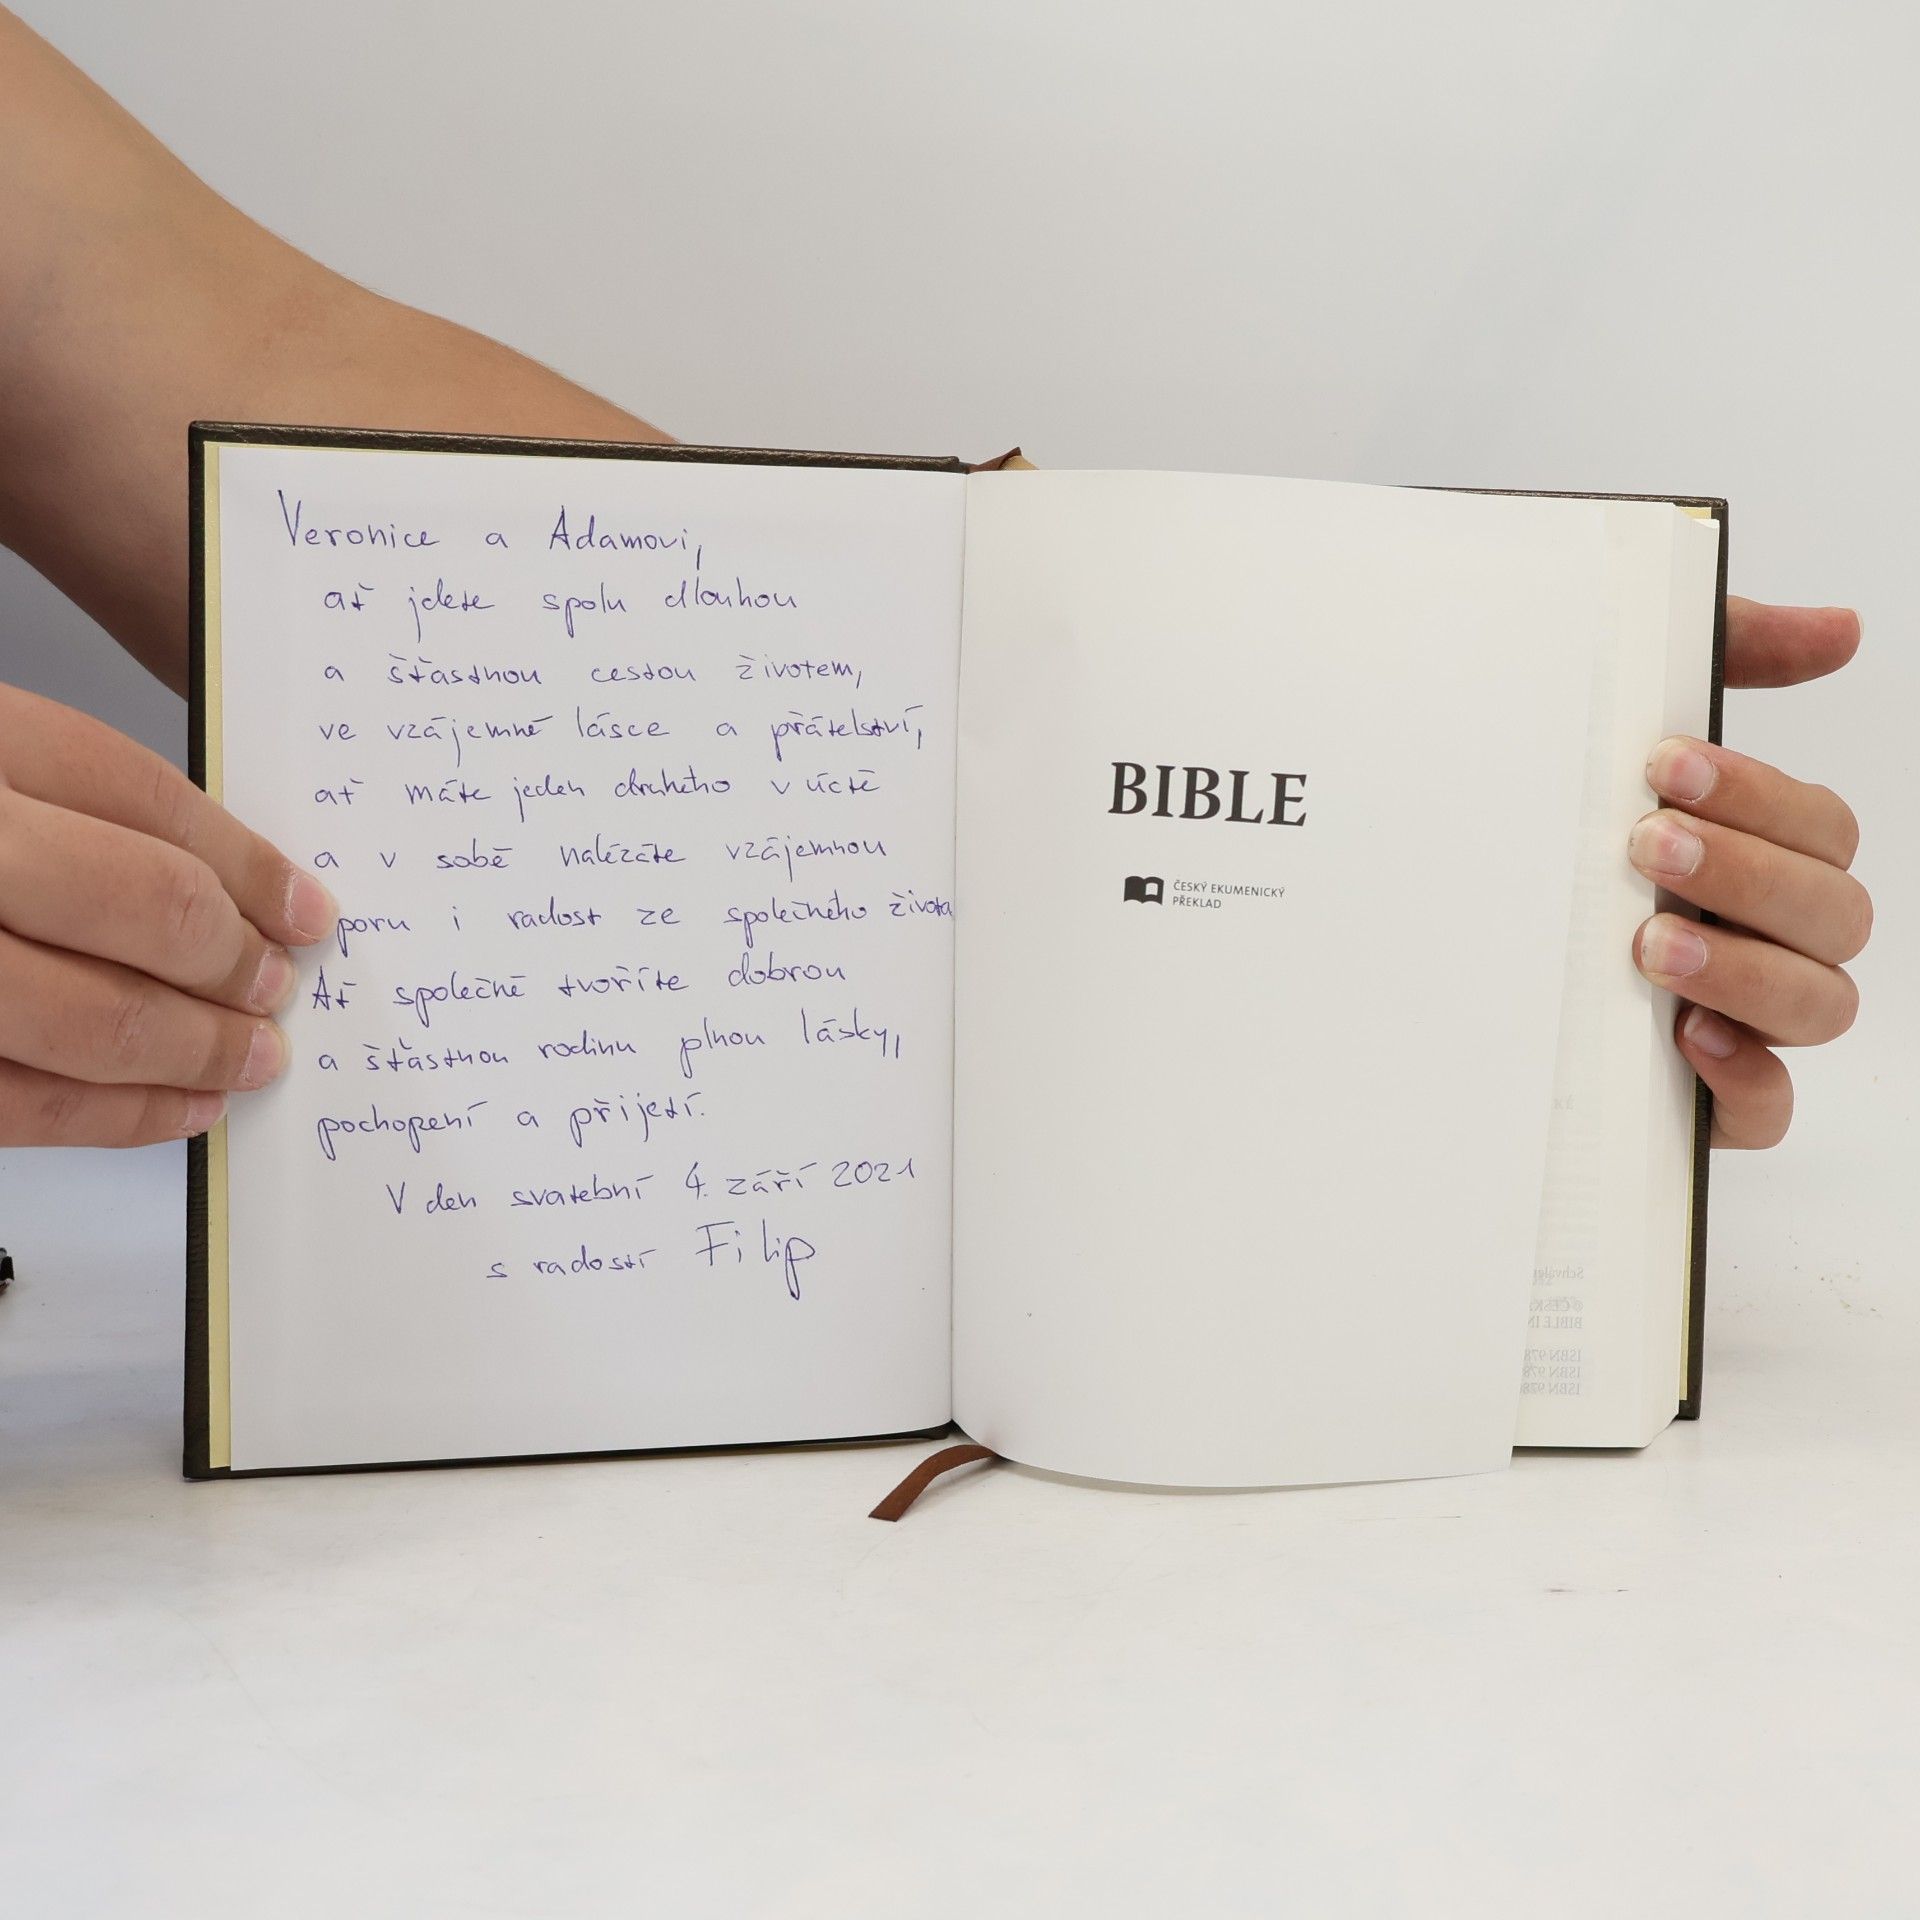 Veronice a Adamovi,
ať jdete spolu dlouhou
a šťastnou cestou životem,
ve vzájemné lásce a přátelství,
ať máte jeden druhého v úctě
a v sobě nalézáte vzájemnou
poru i radost ze společného života
Ať společně tvoříte dobrou
a šťastnou rodinu plnou lásky,
pochopení a přijetí.
V den svatební 4. září 2021
s radostí Filip
BIBLE
ČESKÝ EKUMENICKÝ
PŘEKLAD